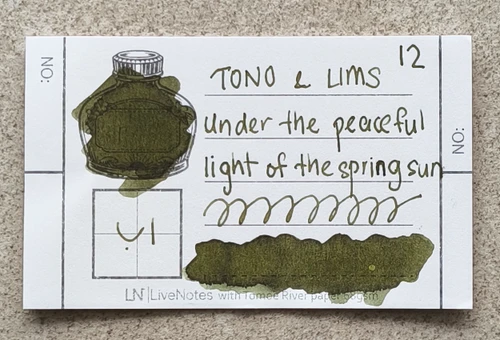 12
NO:
TONO & LIMS
Under the peaceful
light of the spring sun
NO:
LN LiveNotes with Tomoe River paper 68gsm